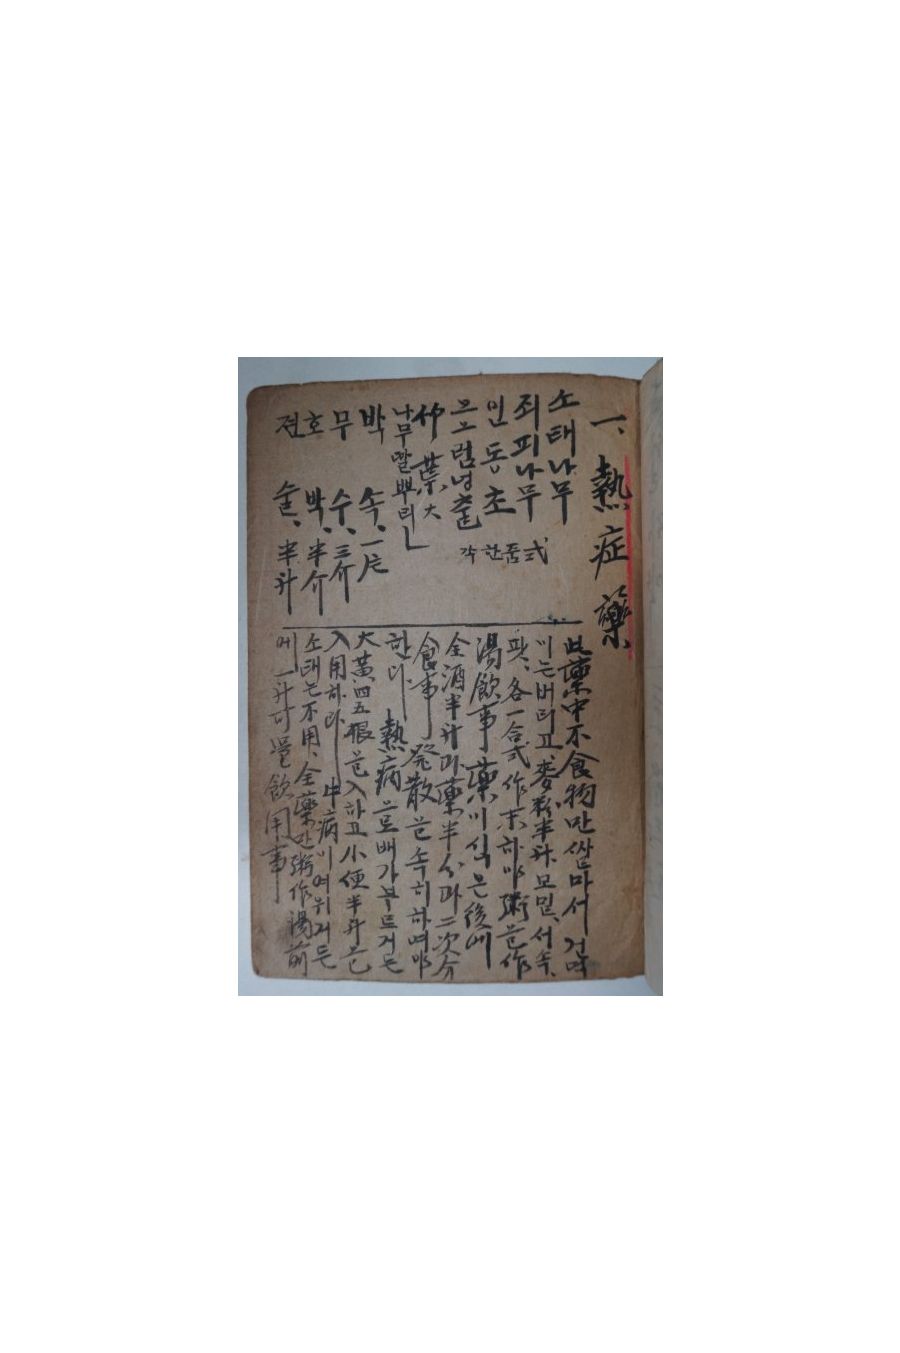 一、熱症藥
소태나무
죄피나무
인동초
으름넝쿨
각한줌式
竹葉大
나무딸뿌리
박속、一片
무수、三介
호박、半介
젼술、半升
此藥中不食物만 쌀마서 건덕
이는버리고、麥粉半升、모밀、서속、
팟、各一合式作末하야 粥을作
湯飮事 藥이식은後에
全酒半升과藥半分과二次分
食事 発散을속히하여야
한다 熱病으로배가부르거든
大黃四五根을入하고小便半升을
入用하라 中病이여위거든
소태는不用、全藥만粥作湯前
에一升可量飮用事